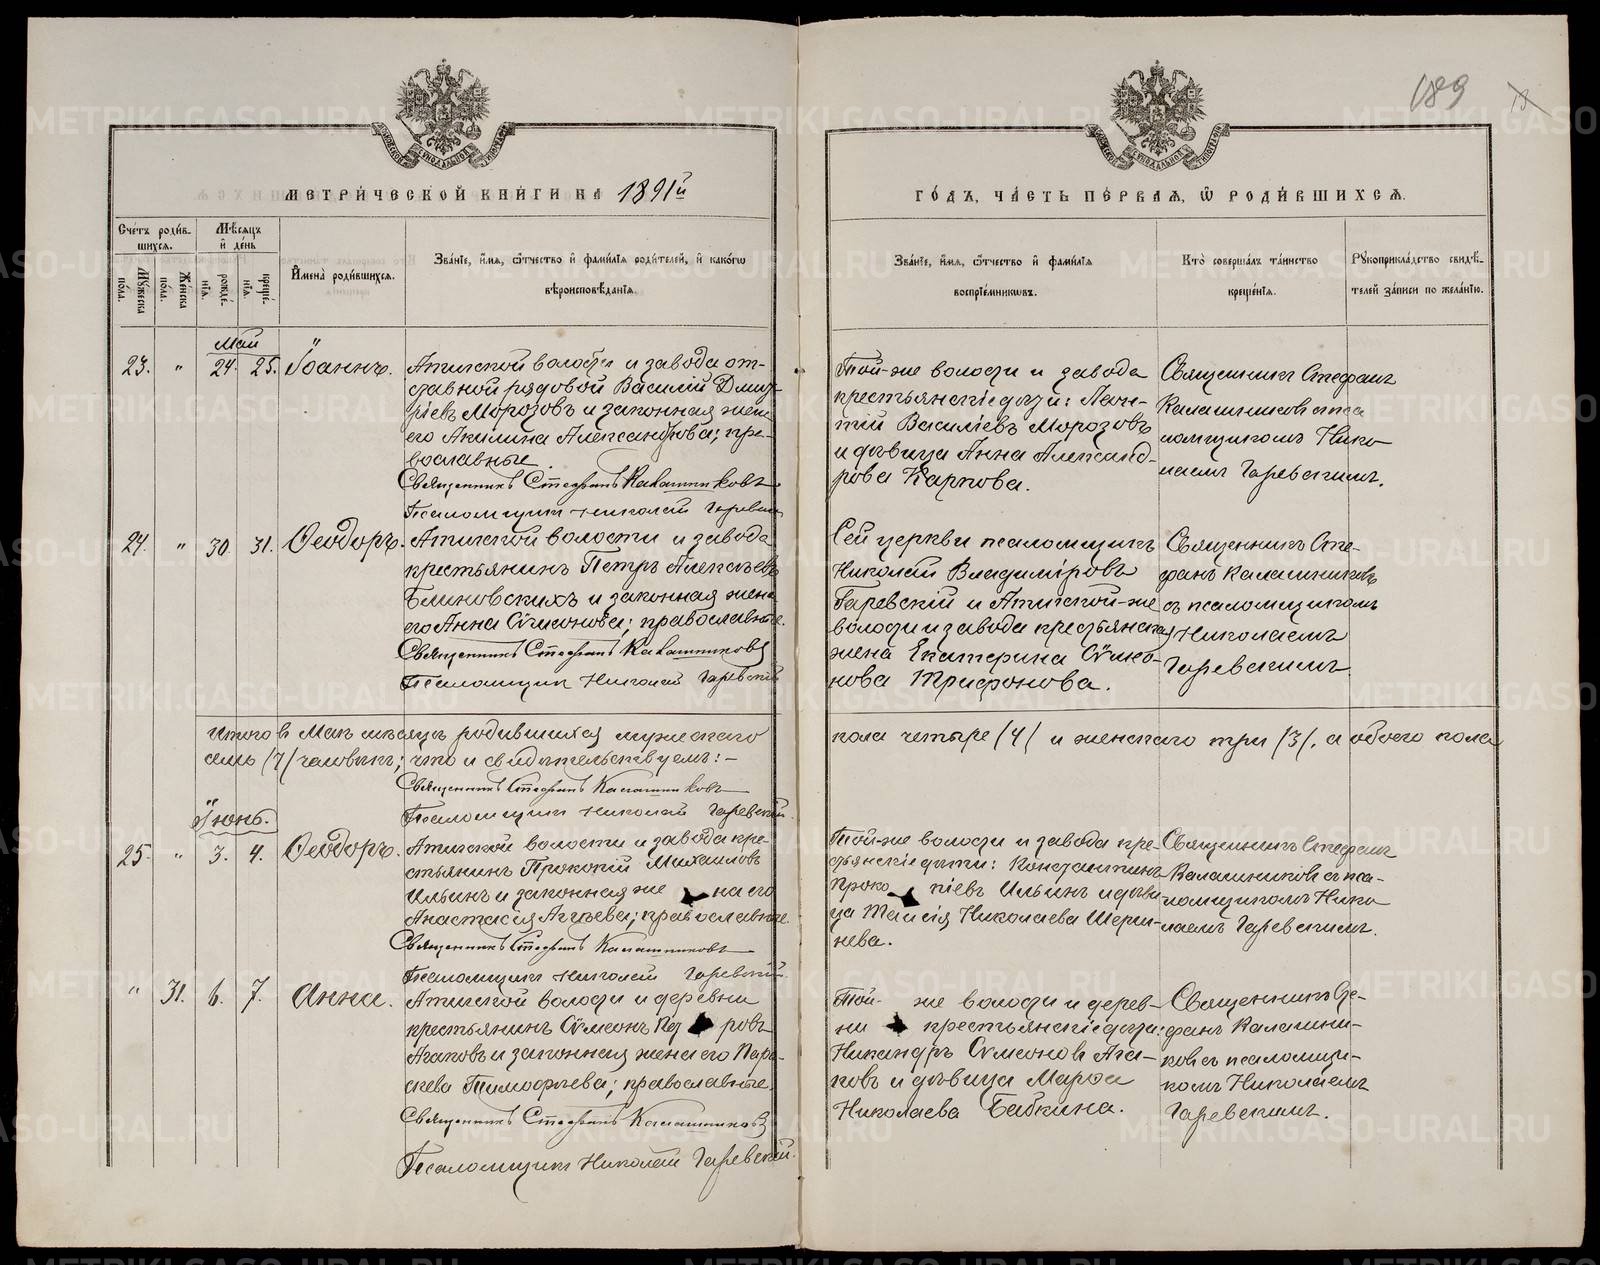 189
13
МЕТРИЧЕСКОЙ КНИГИ НА 1891й
ГОДЪ, ЧАСТЬ ПЕРВАЯ, Ѡ РОДИВШИХСЯ.
Счетъ родившихся.
Мѣсяцъ и день
Мужеска пола.
Женска пола.
рожденїя.
крещенїя.
Имена родившихся.
Званїе, имя, ѻтчество и фамилїя родителей, и какогѡ
вѣроисповѣданїя.
Званїе, имя, ѻтчество и фамилїя
воспрїемникѡвъ.
Кто совершалъ таинство
крещенїя.
Рукоприкладство свидѣ-
телей записи по желанїю.
Май
23. " 24. 25. Іоаннъ.
Атигской волости и завода от-
ставной рядовой Василій Димит-
ріевъ Морозовъ и законная жена
его Акилина Александрова; пра-
вославные.
Священникъ Стефанъ Калашниковъ
Псаломщикъ Николай Гаревскій
Той-же волости и завода
крестьянскіе дѣти: Леон-
тій Василіевъ Морозовъ
и дѣвица Анна Александ-
рова Карпова.
Священникъ Стефанъ
Калашниковъ съ пса-
ломщикомъ Нико-
лаемъ Гаревскимъ.
24. " 30. 31. Ѳеодоръ.
Атигской волости и завода
крестьянинъ Петръ Алексѣевъ
Блиновскихъ и законная жена
его Анна Сѵмеонова; православные.
Священникъ Стефанъ Калашниковъ
Псаломщикъ Николай Гаревскій
Сей церкви псаломщикъ
Николай Владиміровъ
Гаревскій и Атигской-же
волости и завода крестьянская
жена Екатерина Сѵмео-
нова Трифонова.
Священникъ Сте-
фанъ Калашниковъ
съ псаломщикомъ
Николаемъ
Гаревскимъ.
Итого въ Маѣ мѣсяцѣ родившихся мужескаго
пола четыре /4/ и женскаго три /3/, а обоего пола
семь /7/ человѣкъ; что и свидѣтельствуемъ: –
Священникъ Стефанъ Калашниковъ
Псаломщикъ Николай Гаревскій.
Іюнь.
25. " 3. 4. Ѳеодоръ.
Атигской волости и завода кре-
стьянинъ Прокопій Михаиловъ
Ильинъ и законная же на его
Анастасія Аггѣева; православные.
Священникъ Стефанъ Калашниковъ
Псаломщикъ Николай Гаревскій.
Той-же волости и завода кре-
стьянскіе дѣти: Константинъ
Проко піевъ Ильинъ и дѣви-
ца Таисія Николаева Шерш-
нева.
Священникъ Стефанъ
Калашниковъ съ пса-
ломщикомъ Нико-
лаемъ Гаревскимъ.
" 31. 6. 7. Анна.
Атигской волости и деревни
крестьянинъ Сѵмеонъ Пет ровъ
Агаковъ и законная жена его Пара-
скева Тимофѣева; православные.
Священникъ Стефанъ Калашниковъ
Псаломщикъ Николай Гаревскій.
Той- же волости и дерев-
ни крестьянскіе дѣти:
Никандръ Сѵмеоновъ Ага-
ковъ и дѣвица Марѳа
Николаева Бабкина.
Священникъ Сте-
фанъ Калашни-
ковъ съ псаломщи-
комъ Николаемъ
Гаревскимъ.
METRIKI.GASO-URAL.RU